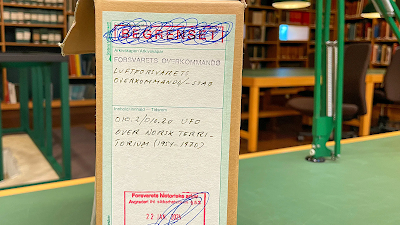 BEGRENSET
Arkivskaper/Arkivenhet
FORSVARETS OVERKOMMANDO
LUFTFORSVARETS
OVERKOMMANDO/-STAB
Innhold/Arkivdel - Tidsrom
010.2/016.20 UFO
OVER NORSK TERRI-
TORIUM (1954-1970)
Forsvarets historiske arkiv
Avgradert iht. sikkerhetsloven
22 JAN.